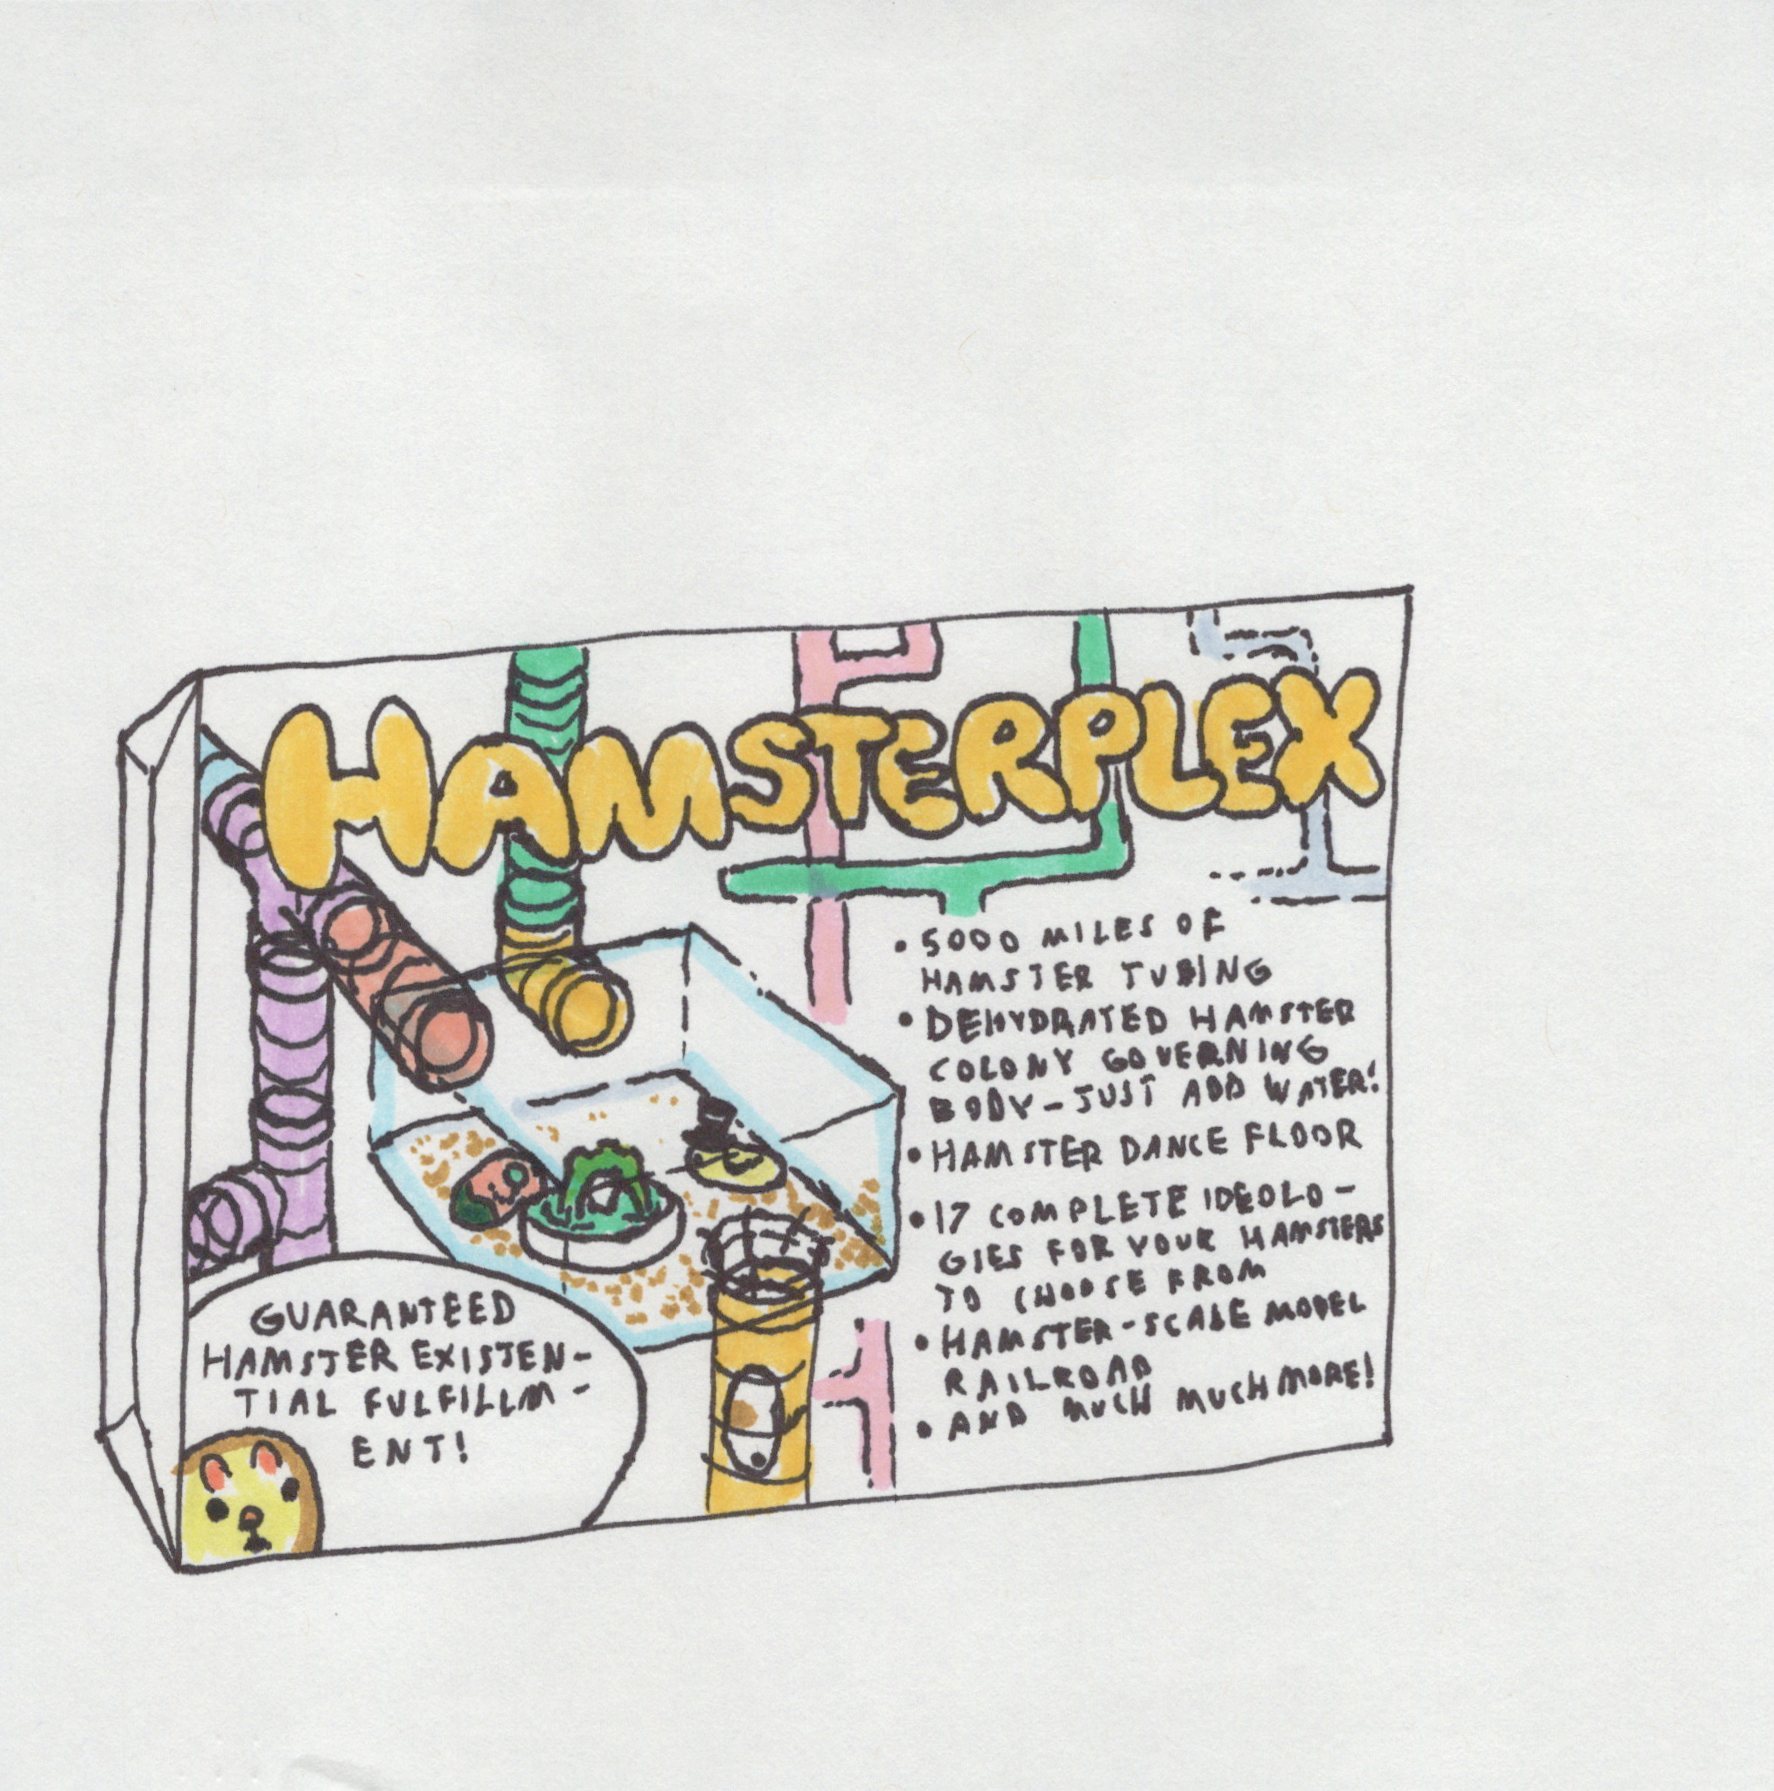 HAMSTERPLEX
• 5000 MILES OF
HAMSTER TUBING
• DEHYDRATED HAMSTER
COLONY GOVERNING
BODY - JUST ADD WATER!
• HAMSTER DANCE FLOOR
• 17 COMPLETE IDEOLO-
GIES FOR YOUR HAMSTERS
TO CHOOSE FROM
• HAMSTER-SCALE MODEL
RAILROAD
• AND MUCH MUCH MORE!
GUARANTEED
HAMSTER EXISTEN-
TIAL FULFILLM-
ENT!